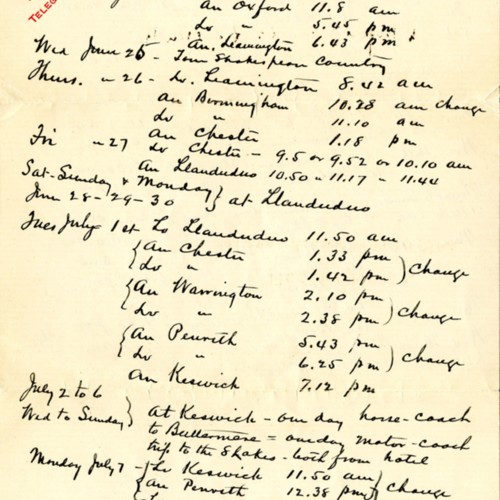 TELEG
An Oxford 11.8 am
Lv " 5.45 pm
" An. Leamington 6.43 pm
Wed June 25 - Tour Shakespear Country
Thurs. " 26 - Lv. Leamington 8.42 am
An Birmingham 10.28 am Change
Lv " 11.10 am
An Chester 1.18 pm
Fri " 27 Lv Chester - 9.5 or 9.52 or 10.10 am
An Llandudno 10.50 " 11.17 " 11.44
Sat - Sunday & Monday } at Llandudno
June 28 - 29 - 30
Tues July 1st Lv Llandudno 11.50 am
{ An Chester 1.33 pm ) Change
{ Lv " 1.42 pm
{ An Warrington 2.10 pm ) Change
{ Lv " 2.38 pm
{ An Penrith 5.43 pm ) Change
{ Lv " 6.25 pm
An Keswick 7.12 pm
July 2 to 6
Wed to Sunday } At Keswick - one day horse-coach
to Buttermere = one day motor-coach
trip to the Lakes - both from hotel
Monday July 7 - { Lv Keswick 11.50 am } Change
{ An Penrith 12.38 pm